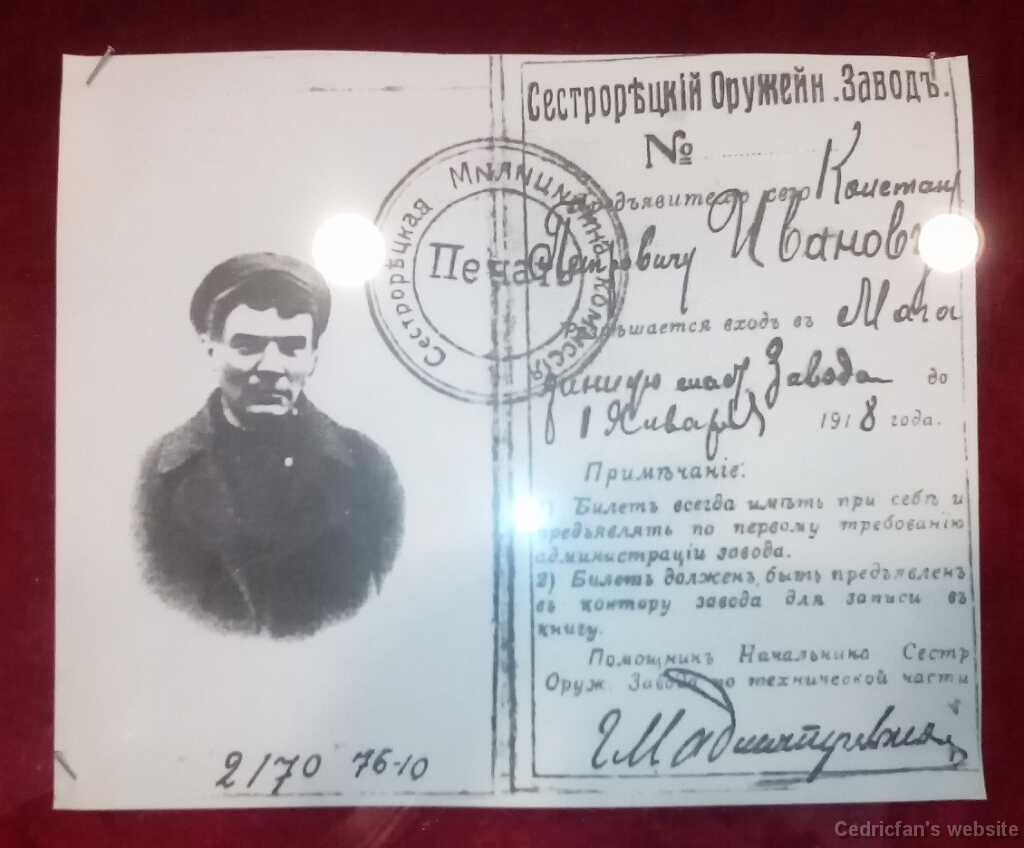 Сестрорѣцкій Оружейн. Заводъ.
№
Предъявителю сего Констан
Петровичу Иванову
Разрѣшается входъ въ Мага
Завода до
1 Января 1918 года.
Примѣчаніе:
1) Билетъ всегда имѣть при себѣ и
предъявлять по первому требованію
администраціи завода.
2) Билетъ долженъ быть предъявленъ
въ контору завода для записи въ
книгу.
Помощникъ Начальника Сестр
Оруж. Завода по технической части
Сестрорѣцкая Милиционная комиссія
Печать
2170 76-10
Cedricfan's website